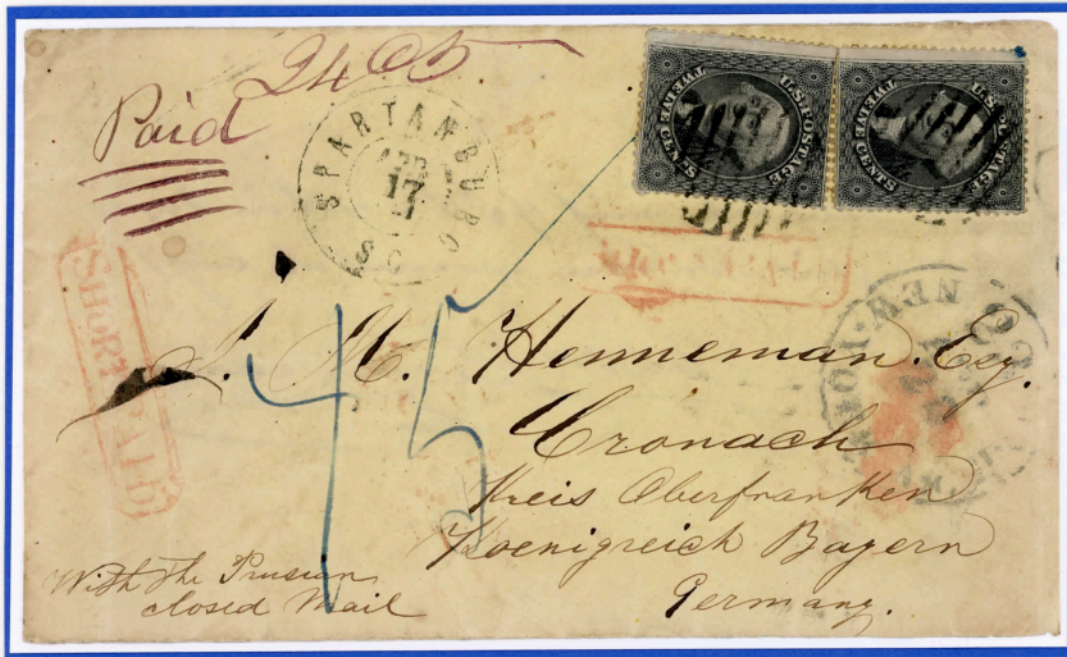 Paid 24 Cts
SPARTANBURG
S.C.
APR
17
U.S. POSTAGE
TWELVE CENTS
U.S. POSTAGE
TWELVE CENTS
SHORT PAID
NEW-YORK
45
M. Henneman. Esq.
Cronach
Kreis Oberfranken
Koenigreich Bayern
Germany.
With The Prusian
closed Mail